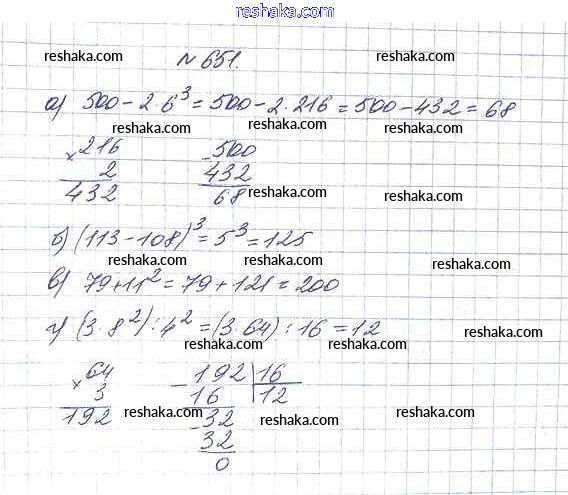 www.reshaka.com
№651. reshaka.com reshaka.com
reshaka.com
а) 500-2·6³=500-2·216=500-432=68
reshaka.com reshaka.com reshaka.com
×216 -500
2 432
432 68
reshaka.com reshaka.com
б) (113-108)³=5³=125
reshaka.com reshaka.com reshaka.com
в) 79+11²=79+121=200
г) (3·8²):4²=(3·64):16=12
reshaka.com reshaka.com reshaka.com
×64 -192|16
3 16 12
192 -32
32
0
reshaka.com reshaka.com reshaka.com